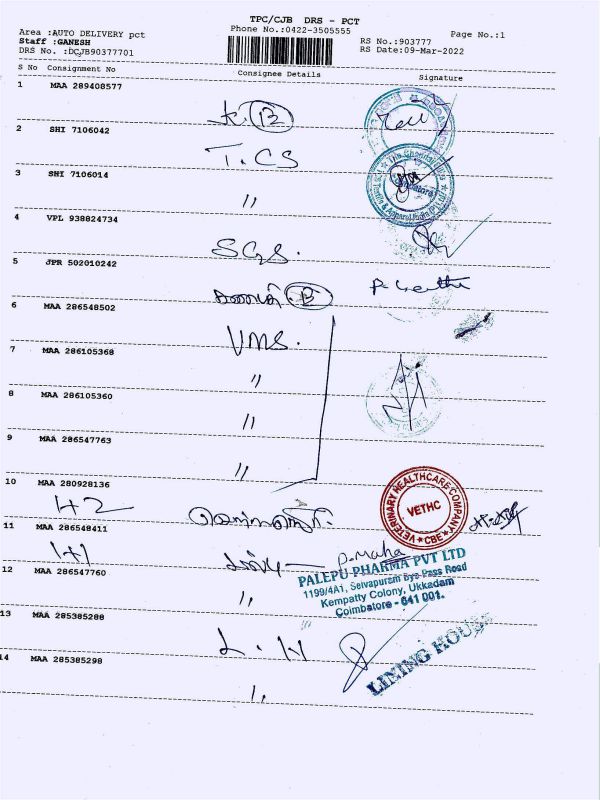 TPC/CJB DRS - PCT
Area :AUTO DELIVERY pct Phone No.:0422-3505555 Page No.:1
Staff :GANESH RS No.:903777
DRS No. :DCJB90377701 RS Date:09-Mar-2022
S No Consignment No Consignee Details Signature
1 MAA 289408577
B
2 SHI 7106042
T.CS
3 SHI 7106014
"
4 VPL 938824734
SGS.
5 JPR 502010242
B
6 MAA 286548502
VMS.
7 MAA 286105368
"
8 MAA 286105360
"
9 MAA 286547763
"
10 MAA 280928136
H2
VETERINARY HEALTHCARE COMPANY
VETHC
★ CBE ★
11 MAA 286548411
1+1
P.Maha
PALEPU PHARMA PVT LTD
1199/4A1, Selvapuram Bye Pass Road
Kempatty Colony, Ukkadam
Coimbatore - 641 001.
12 MAA 286547760
"
13 MAA 285385288
L.H
LINING HOUSE
14 MAA 285385298
"